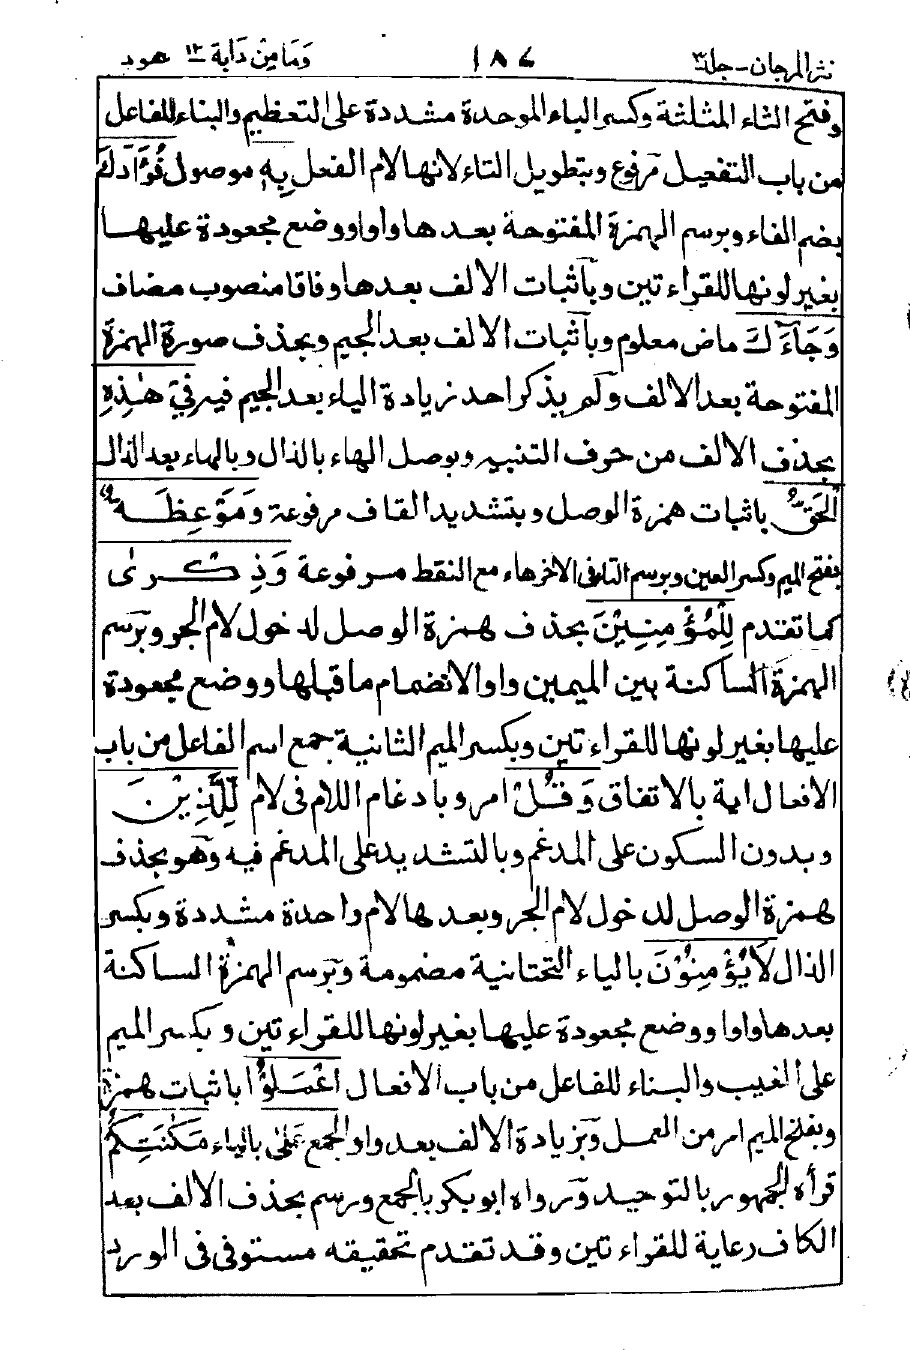 نثر المرجان - جلد ٣ ١٨٧ وَمَا مِنْ دَابة ١٢ هود
وفتح الثاء المثلثة وكسر الباء الموحدة مشددة على التعظيم والبناء للفاعل
من باب التفعيل مرفوع وبتطويل التاء لانها لام الفعل بِهٖ موصول فُؤَادَكَ
بضم الفاء وبرسم الهمزة المفتوحة بعدها واوا ووضع مجعودة عليها
بغير لونها للقراءتين وبآثبات الالف بعدها وفاقا منصوب مضاف
وَجَآءَكَ ماض معلوم وبآثبات الالف بعد الجيم وبحذف صورة الهمزة
المفتوحة بعد الالف ولم يذكر احد زيادة الياء بعد الجيم فيه فِيْ هٰذِهِ
بحذف الالف من حرف التنبيه وبوصل الهاء بالذال وبالهاء بعد الذال
الْحَقُّ باثبات همزة الوصل وبتشديد القاف مرفوعة وَمَوْعِظَةٌ
بفتح الميم وكسر العين وبرسم التاء فى الاخر هاء مع النقط مرفوعة وَذِكْرٰى
كما تقدم لِلْمُؤْمِنِيْنَ بحذف همزة الوصل لدخول لام الجر وبرسم
الهمزة الساكنة بين الميمين واوا لانضمام ما قبلها ووضع مجعودة
عليها بغير لونها للقراءتين وبكسر الميم الثانية جمع اسم الفاعل من باب
الافعال اية بالاتفاق وَقُلْ امر وبادغام اللام فى لام لِلَّذِيْنَ
وبدون السكون على المدغم وبالتشديد على المدغم فيه وهو بحذف
همزة الوصل لدخول لام الجر وبعدها لام واحدة مشددة وبكسر
الذال لَا يُؤْمِنُوْنَ بالياء التحتانية مضمومة وبرسم الهمزة الساكنة
بعدها واوا ووضع مجعودة عليها بغير لونها للقراءتين وبكسر الميم
على الغيب والبناء للفاعل من باب الافعال اعْمَلُوْا باثبات همزة
وبفتح الميم امر من العمل وبزيادة الالف بعد واو الجمع عَلٰى بالياء مَكَانَتِكُمْ
قرأه الجمهور بالتوحيد ورواه ابو بكر بالجمع ورسم بحذف الالف بعد
الكاف رعاية للقراءتين وقد تقدم تحقيقه مستوفى فى الورد